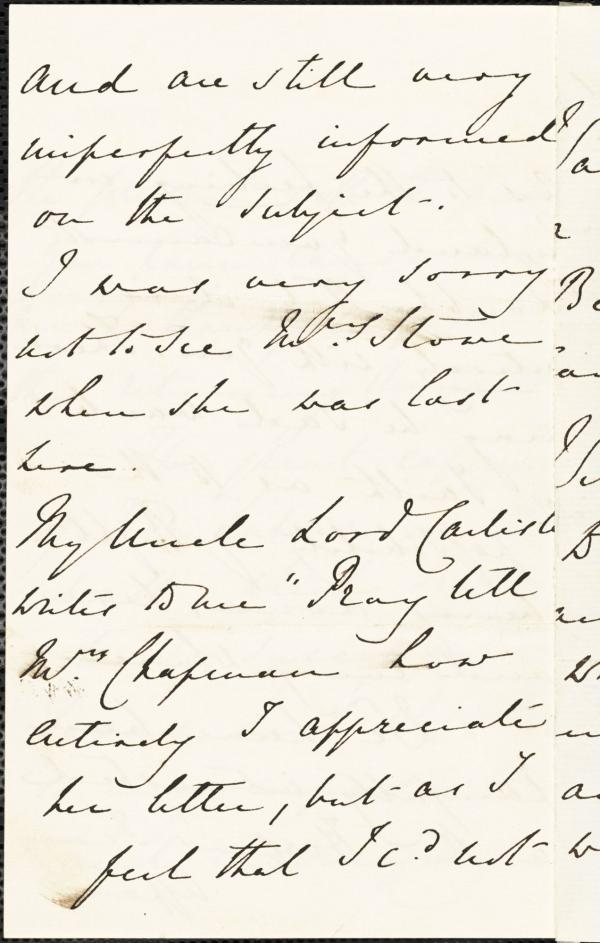 and are still very
imperfectly informed
on the subject.
I was very sorry
not to see Mrs. Stowe
when she was last
here.
My Uncle Lord Carlisle
writes to me "Pray tell
Mrs. Chapman how
entirely I appreciate
her letter, but as I
feel that I cd. not